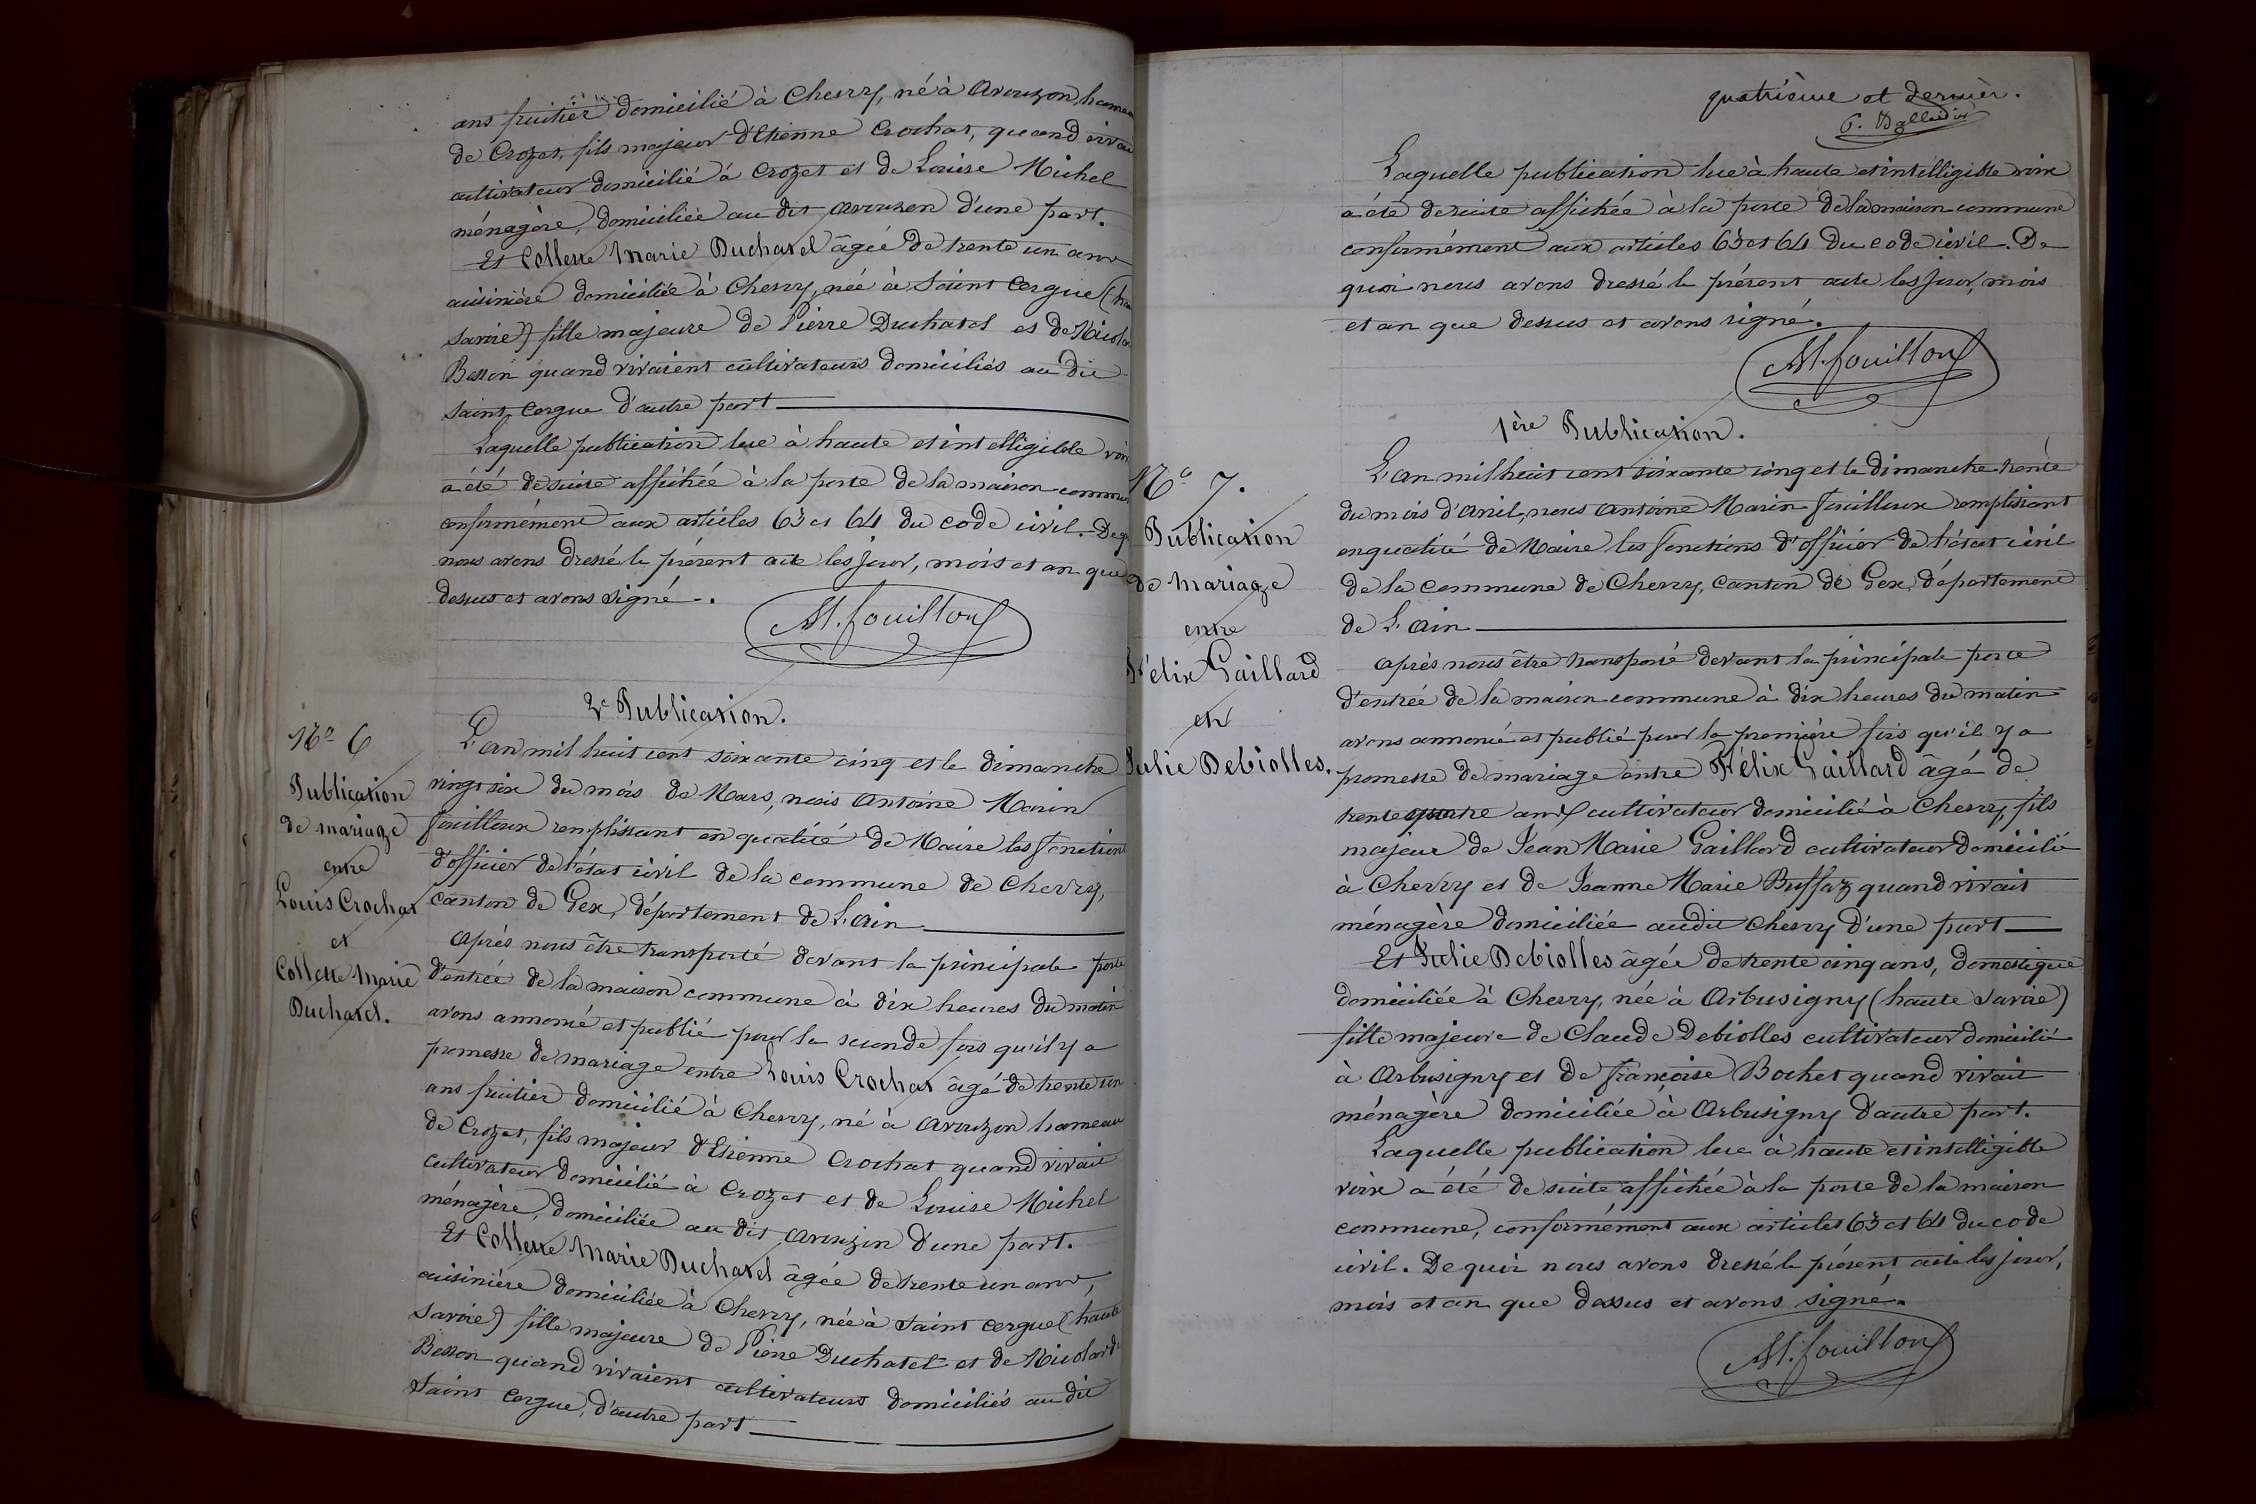 ans fruitier domicilié à Chevry, né à Avouzon, hameau
de Crozet, fils majeur d'Etienne Crochat, quand vivait
cultivateur domicilié à Crozet et de Louise Michel
ménagère, domiciliée au dit Avouzon d'une part.
Et Collette Marie Duchatel âgée de trente un ans
cuisinière domiciliée à Chevry, née à Saint Cergue (haute
Savoie) fille majeure de Pierre Duchatel et de Nicolarde
Besson quand vivaient cultivateurs domiciliés au dit
Saint Cergue d'autre part
Laquelle publication lue à haute et intelligible voix
a été de suite affichée à la porte de la maison commune
conformément aux articles 63 et 64 du code civil. De quoi
nous avons dressé le présent acte les jour, mois et an que
dessus et avons signé.
AM. fouilloux
2e Publication.
No 6
Publication
de mariage
entre
Louis Crochat
et
Collette Marie
Duchatel.
L'an mil huit cent soixante cinq et le dimanche
vingt six du mois de Mars, nous Antoine Marin
Fouilloux remplissant en qualité de Maire les fonctions
d'officier de l'état civil de la commune de Chevry,
canton de Gex, département de L'ain
après nous être transporté devant la principale porte
d'entrée de la maison commune à dix heures du matin
avons annoncé et publié pour la seconde fois qu'il y a
promesse de mariage entre Louis Crochat âgé de trente un
ans fruitier domicilié à Chevry, né à Avouzon hameau
de Crozet, fils majeur d'Etienne Crochat quand vivait
cultivateur domicilié à Crozet et de Louise Michel
ménagère, domiciliée au dit Avouzon d'une part.
Et Collette Marie Duchatel âgée de trente un ans,
cuisinière domiciliée à Chevry, née à Saint Cergue (haute
Savoie) fille majeure de Pierre Duchatel et de Nicolarde
Besson quand vivaient cultivateurs domiciliés au dit
Saint Cergue, d'autre part
quatrième et dernier.
Laquelle publication lue à haute et intelligible voix
a été de suite affichée à la porte de la maison commune
conformément aux articles 63 et 64 du code civil. De
quoi nous avons dressé le présent acte les jour, mois
et an que dessus et avons signé.
AM. fouilloux
1ère Publication.
No 7.
Publication
de mariage
entre
Félix Gaillard
et
Julie Debiolles.
L'an mil huit cent soixante cinq et le dimanche trente
du mois d'avril, nous Antoine Marin Fouilloux remplissant
en qualité de Maire les fonctions d'officier de l'état civil
de la commune de Chevry, canton de Gex, département
de L'ain
après nous être transporté devant la principale porte
d'entrée de la maison commune à dix heures du matin
avons annoncé et publié pour la première fois qu'il y a
promesse de mariage entre Félix Gaillard âgé de
trente quatre ans cultivateur domicilié à Chevry, fils
majeur de Jean Marie Gaillard cultivateur domicilié
à Chevry et de Jeanne Marie Buffaz quand vivait
ménagère domiciliée audit Chevry d'une part
Et Julie Debiolles âgée de trente cinq ans, domestique
domiciliée à Chevry, née à Arbusigny (haute Savoie)
fille majeure de Claude Debiolles cultivateur domicilié
à Arbusigny et de françoise Bochet quand vivait
ménagère domiciliée à Arbusigny d'autre part.
Laquelle publication lue à haute et intelligible
voix a été de suite affichée à la porte de la maison
commune, conformément aux articles 63 et 64 du code
civil. De quoi nous avons dressé le présent acte les jour,
mois et an que dessus et avons signé.
AM. fouilloux